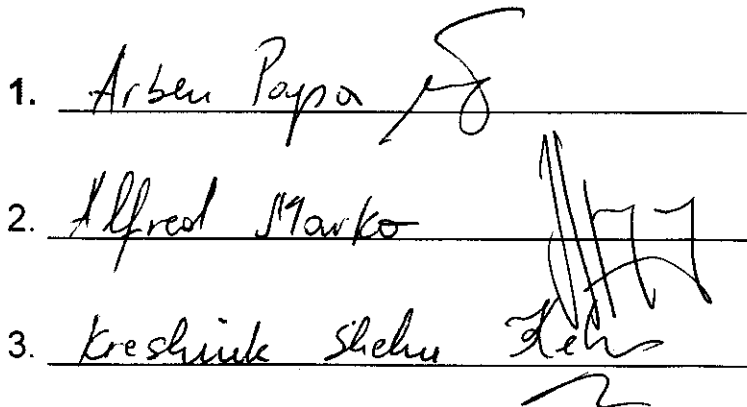 1. Arben Papa
2. Alfred Marko
3. Kreshnik Shehu